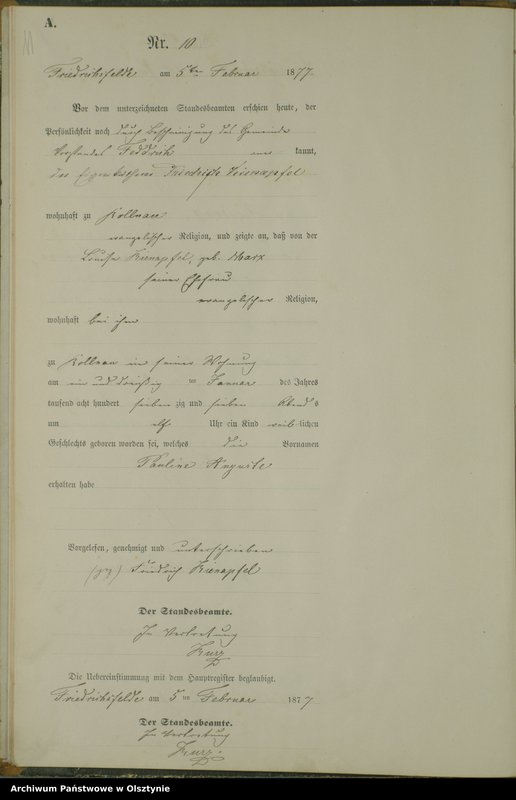 A.
Nr. 10
Friedrichsfelde am 5ten Februar 1877.
Vor dem unterzeichneten Standesbeamten erschien heute, der
Persönlichkeit nach durch Bescheinigung des Gemeinde
Vorstandes kannt,
Friedrich
wohnhaft zu Kollnau
evangelischer Religion, und zeigte an, daß von der
Louise geb. Marx
seiner Ehefrau
evangelischer Religion,
wohnhaft bei ihm
zu Kollnau in seiner Wohnung
am ein und dreißig ten Januar des Jahres
tausend acht hundert sieben zig und sieben Abend s
um elf Uhr ein Kind weib lichen
Geschlechts geboren worden sei, welches die Vornamen
Pauline Auguste
erhalten habe
Vorgelesen, genehmigt und unterschrieben
Friedrich
Der Standesbeamte.
In Vertretung
Kurz
Die Uebereinstimmung mit dem Hauptregister beglaubigt.
Friedrichsfelde am 5 ten Februar 1877
Der Standesbeamte.
In Vertretung
Kurz.
Archiwum Państwowe w Olsztynie